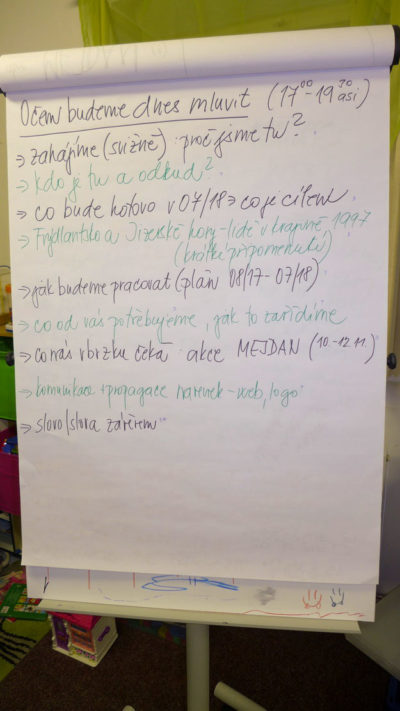 O čem budeme dnes mluvit (17⁰⁰-19³⁰ asi)
→ zahájíme (svižně) proč jsme tu?
→ kdo je tu a odkud?
→ co bude hotovo v 07/18 → co je cílem
→ Frýdlantsko a Jizerské hory - lidé v krajině 1997
(krátké připomenutí)
→ jak budeme pracovat (plán 08/17 - 07/18)
→ co od vás potřebujeme, jak to zařídíme
→ co nás vbrzku čeká akce MEJDAN (10.-12.11.)
→ komunikace + propagace - web, logo
→ slovo/slova závěrem